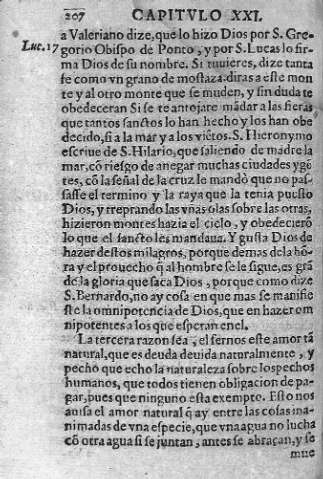 207 CAPITVLO XXI.
a Valeriano dize, que lo hizo Dios por S. Gre-
Luc. 17 gorio Obispo de Ponto, y por S. Lucas lo fir-
ma Dios de su nombre. Si tuuieres, dize tanta
fe como vn grano de mostaza: diras a este mon
te y al otro monte que se muden, y sin duda te
obedeceran Si se te antojare mãdar a las fieras
que tantos sanctos lo han hecho y los han obe
decido, si a la mar y a los viẽtos. S. Hieronymo
escriue de S. Hilario, que saliendo de madre la
mar, cõ riesgo de anegar muchas ciudades y gẽ
tes, cõ la señal de la cruz le mandò que no pas-
sasse el termino y la raya que la tenia puesto
Dios, y reprando las vñas olas sobre las otras,
hizieron montes hazia el cielo, y obedecierõ
lo que el sancto les mandaua. Y gusta Dios de
hazer destos milagros, porque demas de la hõ-
ra y el prouecho q̃ al hombre se le sigue, es grã
de la gloria que saca Dios, porque como dize
S. Bernardo, no ay cosa en que mas se manifie
ste la omnipotencia de Dios, que en hazer om
nipotentes a los que esperan en el.
La tercera razon sea, el sernos este amor tã
natural, que es deuda deuida naturalmente, y
pecho que echo la naturaleza sobre los pechos
humanos, que todos tienen obligacion de pa-
gar, pues que ninguno esta exempto. Esto nos
auisa el amor natural q̃ ay entre las cosas ina-
nimadas de vna especie, que vna agua no lucha
cõ otra agua si se juntan, antes se abraçan, y se
mue